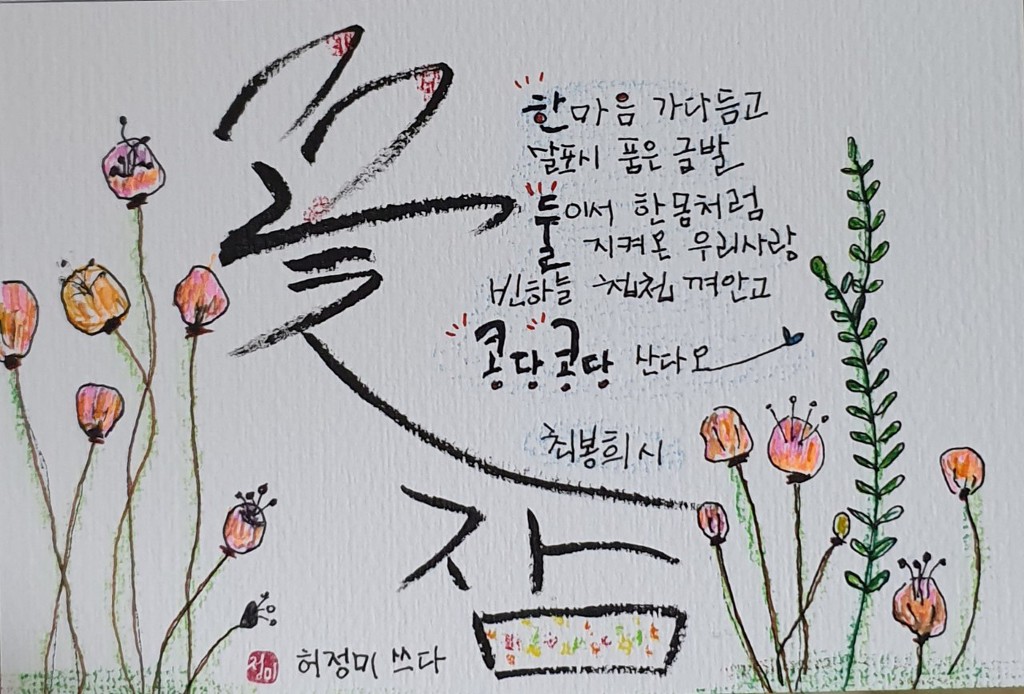 꽃잠
한마음 가다듬고
살포시 품은 금발
둘이서 한몸처럼
지켜온 우리사랑
빈하늘 첩첩 껴안고
콩당콩당 산다오
최봉희 시
정미 허정미 쓰다